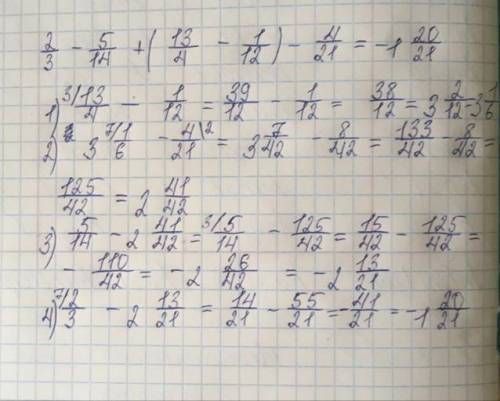 2/3 - 5/14 + (13/4 - 1/12) - 4/21 = -1 20/21
1) 3/ 13/4 - 1/12 = 39/12 - 1/12 = 38/12 = 3 2/12 = 3 1/6
2) 3 7/ 1/6 - 4/21 \2 = 3 7/42 - 8/42 = 133/42 - 8/42 =
125/42 = 2 41/42
3) 5/14 - 2 41/42 = 3/ 5/14 - 125/42 = 15/42 - 125/42 =
- 110/42 = -2 26/42 = -2 13/21
4) 7/ 2/3 - 2 13/21 = 14/21 - 55/21 = -41/21 = -1 20/21